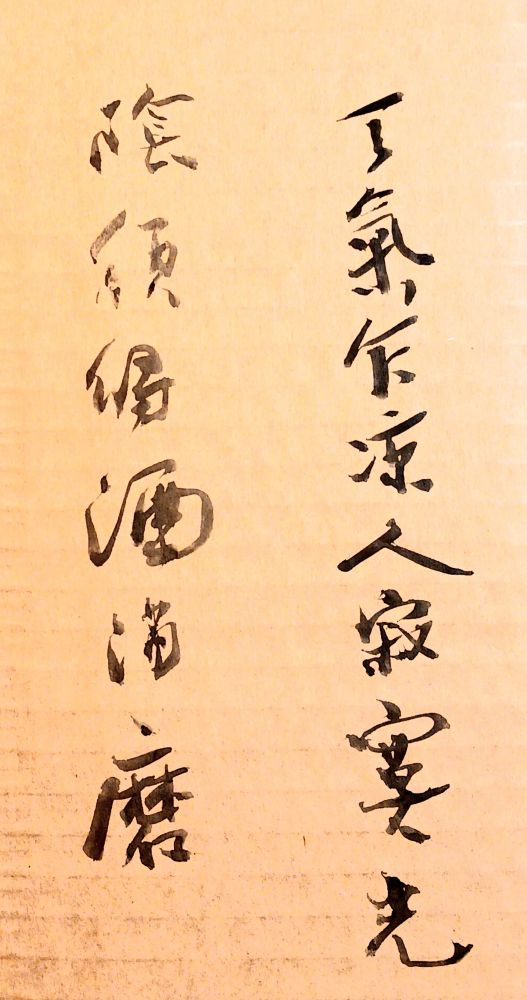 天氣乍涼人寂寞光
陰須得酒消磨